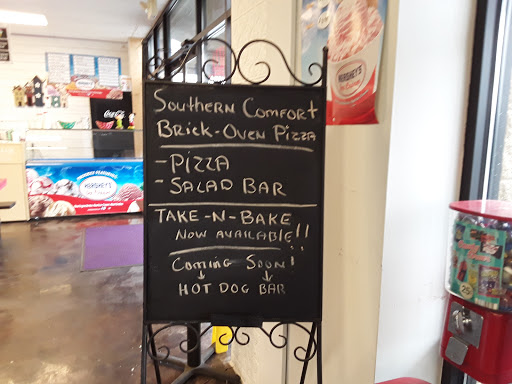 Southern Comfort
Brick-Oven Pizza
- Pizza
- Salad Bar
Take-N-Bake
Now Available!!
Coming Soon!
Hot Dog Bar
HERSHEY'S
Ice Cream
Coca-Cola
HERSHEY'S